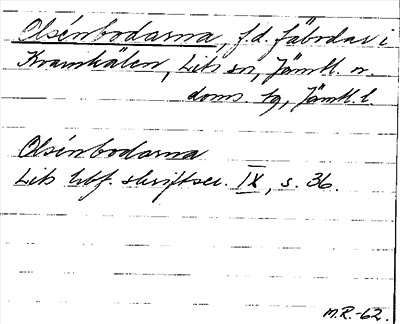 Olsénbodarna, f.d. fäbodar i
Kvarnkälen, Lits sn, Jämtl. v.
doms. tg, Jämtl. l.
Olsénbodarna
Lits hbf. skriftser. IX, s. 36.
M.R.-62.